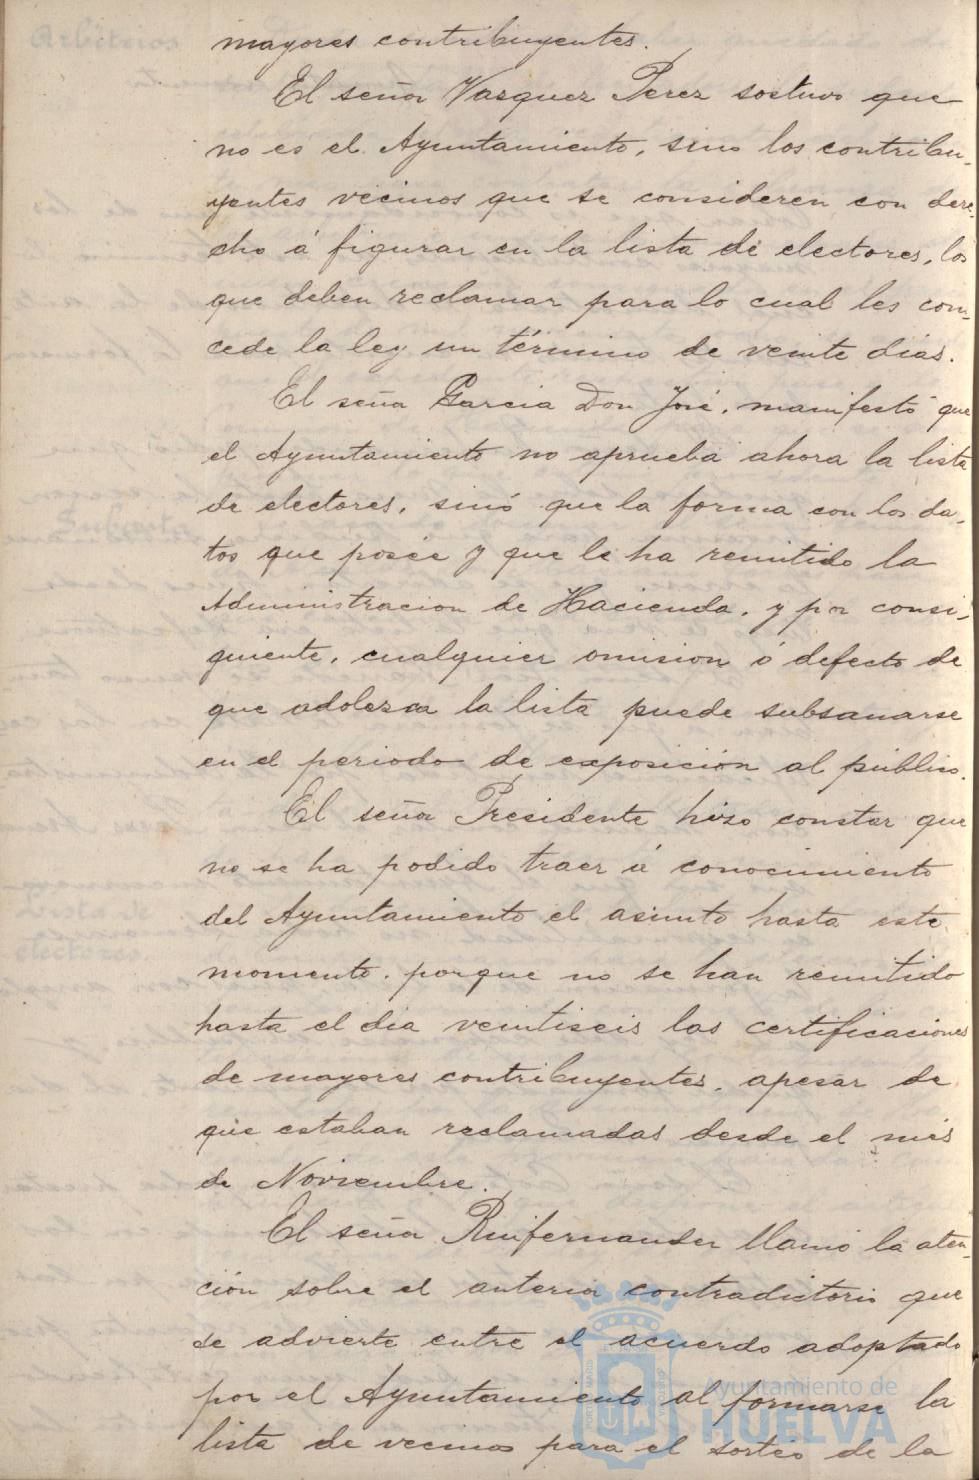 mayores contribuyentes.
El señor Vazquez Perez sostuvo que
no es el Ayuntamiento, sino los contribu-
yentes vecinos que se consideren con dere-
cho á figurar en la lista de electores, los
que deben reclamar para lo cual les con-
cede la ley un término de veinte dias.
El señor Garcia Don José, manifestó que
el Ayuntamiento no aprueba ahora la lista
de electores, sinó que la forma con los da-
tos que posée y que le ha remitido la
Administracion de Hacienda, y por consi-
guiente, cualquier omision ó defecto de
que adolezca la lista puede subsanarse
en el periodo de exposición al público.
El señor Presidente hizo constar que
no se ha podido traer á conocimiento
del Ayuntamiento el asunto hasta este
momento, porque no se han remitido
hasta el dia veintiseis las certificaciones
de mayores contribuyentes, apesar de
que estaban reclamadas desde el més
de Noviembre.
El señor Ruifernandez llamó la aten-
ción sobre el anterior contradictorio que
se advierte entre el acuerdo adoptado
por el Ayuntamiento al formarse la
lista de vecinos para el sorteo de la
Ayuntamiento de
HUELVA